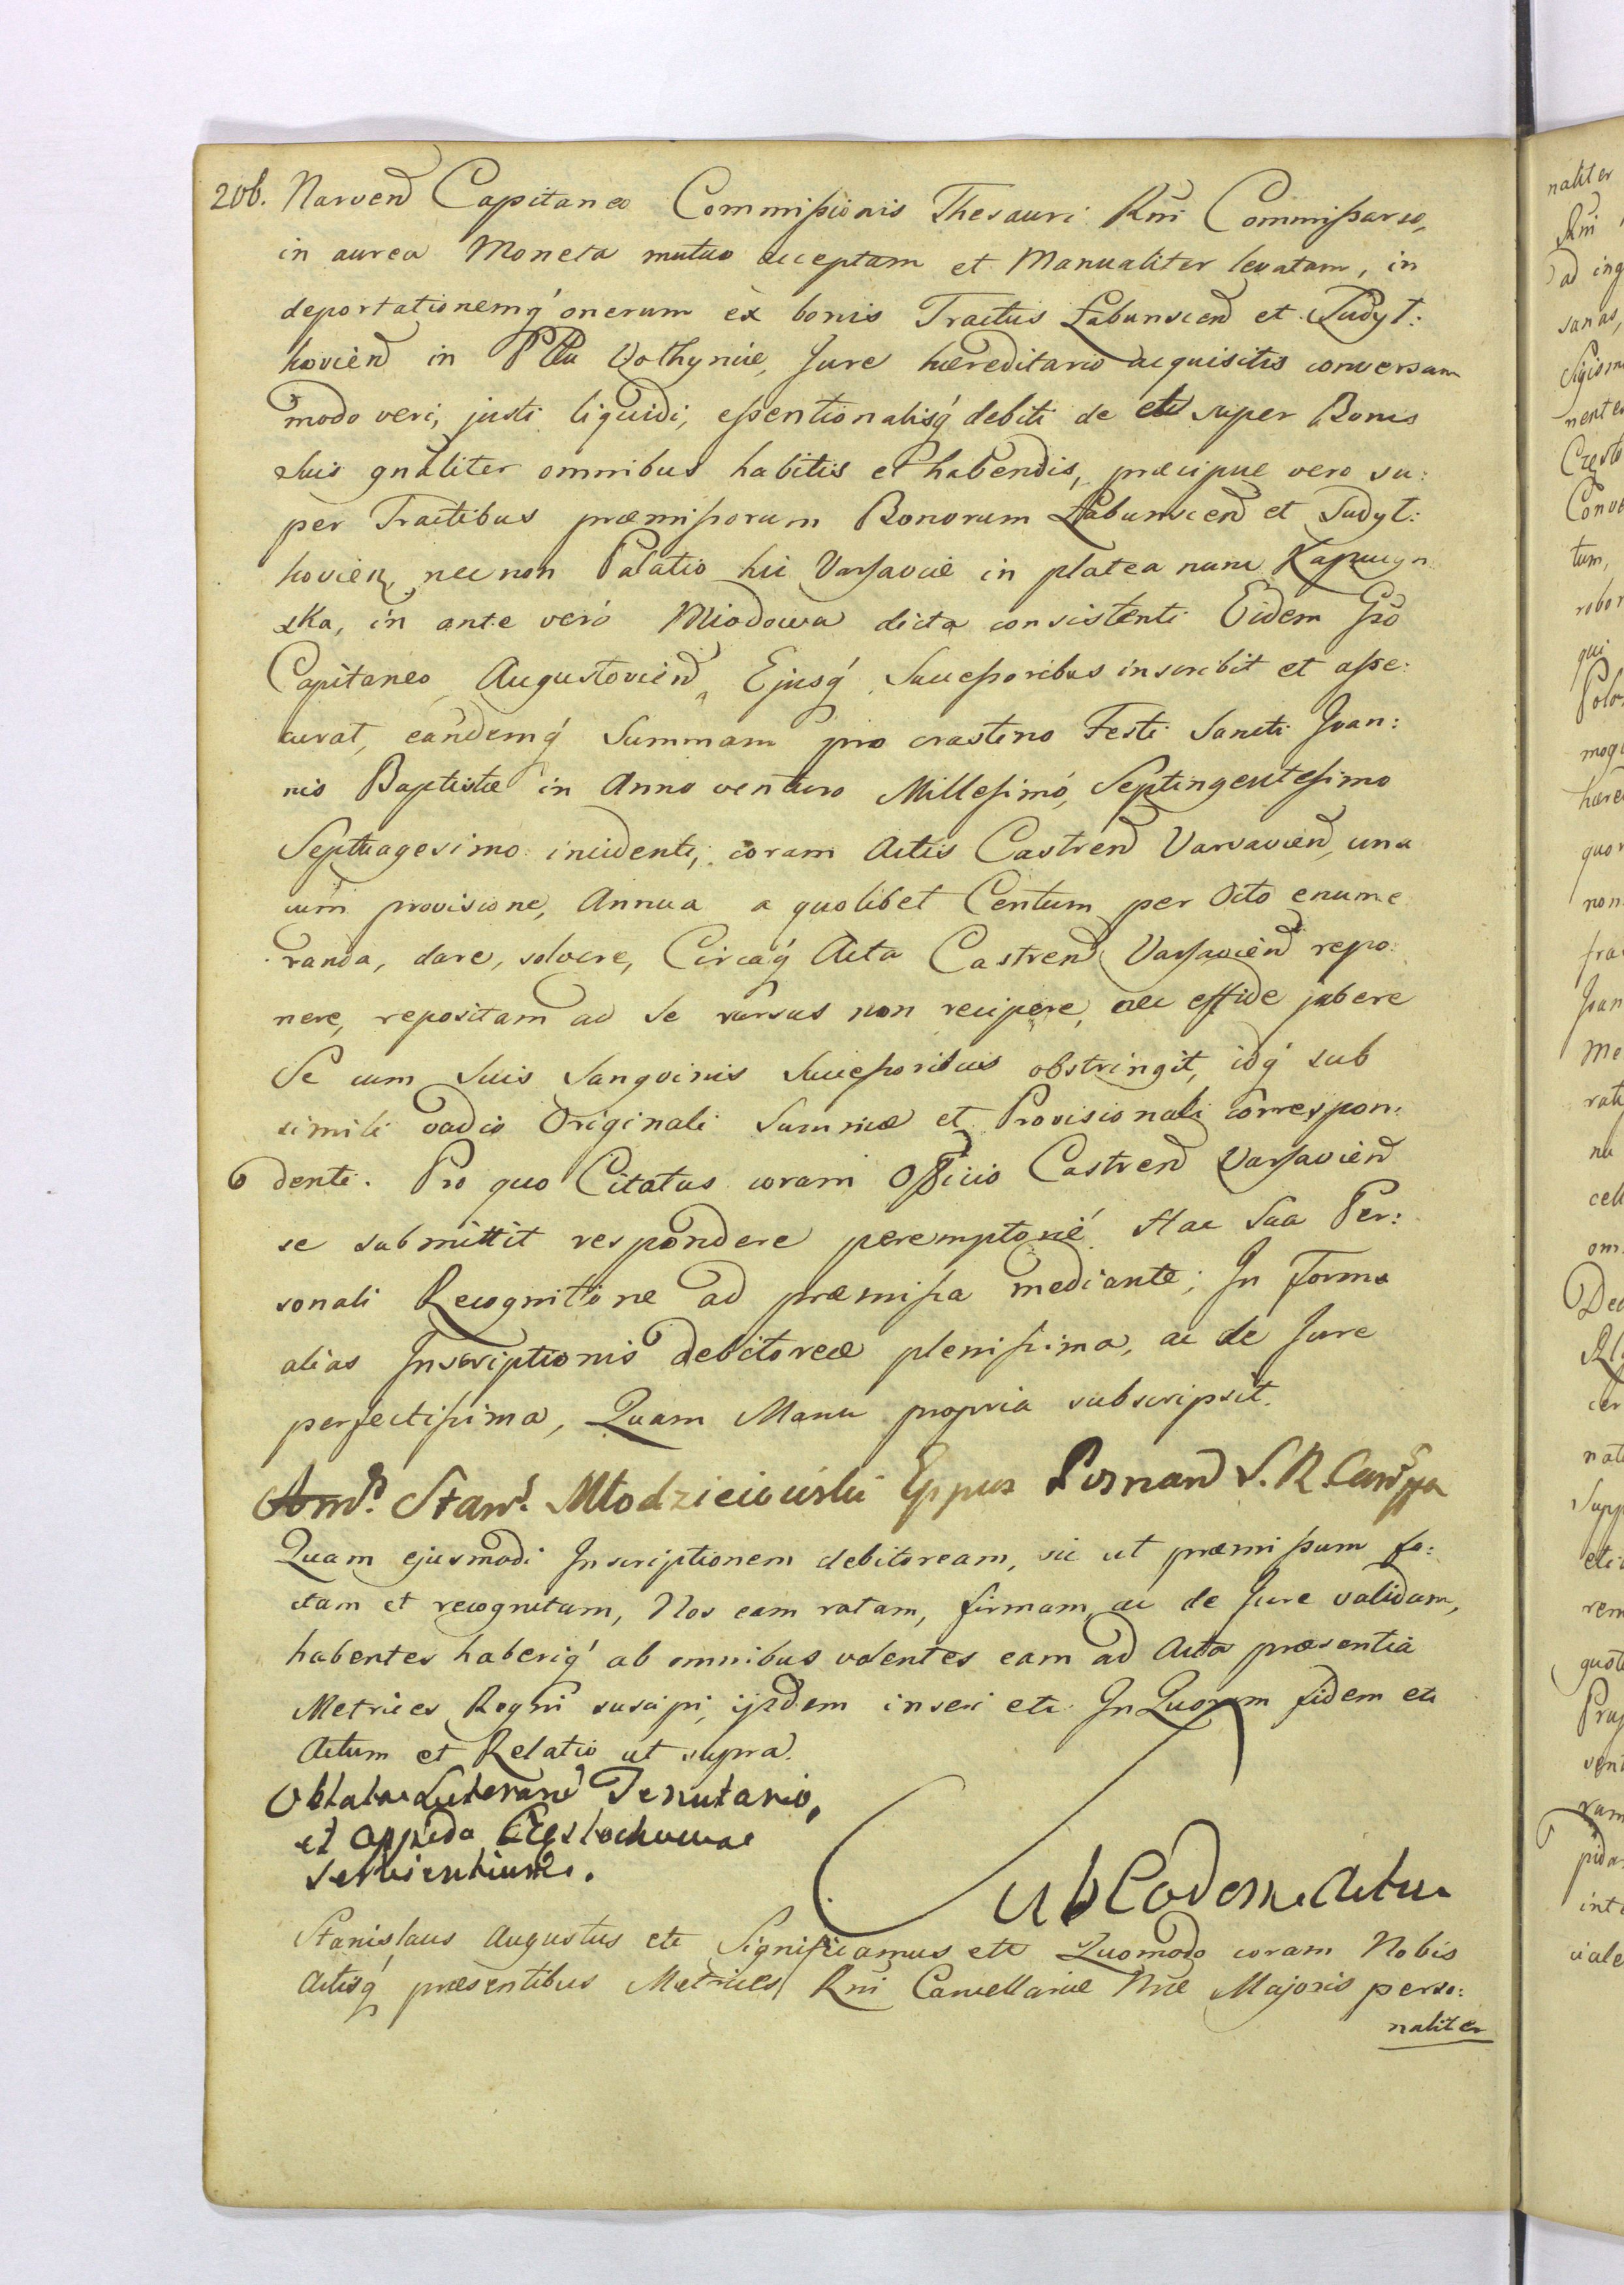 206. Narven Capitaneo Commissionis Thesauri Rni Commissario,
in aurea Moneta mutuo acceptam et Manualiter levatam, in
deportationemq' onerum ex bonis Tractus Łabunscen et Sudył:
kovien in Pltu Volhyniæ, Jure hæreditario acquisitis conversam
modo veri, justi liquidi, essentionalisq' debiti de et super Bonis
suis gnaliter omnibus habitis et habendis, præcipue vero su:
per Tractibus præmissorum Bonorum Łabunscen et Sudył:
kovien, nec non Palatio hic Varsaviæ in platea nunc Kapucyn
ska, in ante vero Miodowa dicta consistenti Eidem Gso
Capitaneo Augustovien Ejusq' Successoribus inscribit et asse:
curat, eandemq' Summam pro crastino Festi Sancti Joan:
nis Baptistæ in Anno venturo Millesimo, Septingentesimo
Septuagesimo incidenti, coram Actis Castren Varsavien, una
cum provisione, Annua a quolibet Centum per Octo enume
randa, dare, solvere, Circaq' Acta Castren Varsavien repo:
nere, repositam ad se rursus non recipere, nec effide jubere
Se cum Suis Sanguinis Successoribus obstringit, idq' sub
simili vadio Originali Summæ et Provisionali correspon:
denti. Pro quo Citatus coram Officio Castren Varsavien
se submittit respondere peremptorié Hac Sua Per:
sonali Recognitione ad præmissa mediante; In forma
alias Inscriptionis debitoreæ plenissima, ac de Jure
perfectissima, Quam Manu propria subscripsit.
Stans. Młodzieiowski Eppus Posnan S. R.
Quam ejusmodi Inscriptionem debitoream, sic ut præmissum fa:
ctam et recognitam, Nos eam ratam, firmam, ac de Jure validam,
habentes haberiq' ab omnibus volentes eam ad Acta præsentia
Metrices Regni suscipi, ijsdem inseri etc In Quorum fidem etc
Actum et Relatio ut supra.
Oblata Tenutario,
et Oppido Częstochoviae
servientium.
Sub Eodem Actu
Stanislaus Augustus etc Significamus etc Quomodo coram Nobis
Actisq' præsentibus Metrices Rni Cancellariæ Nræ Majoris perso:
naliter